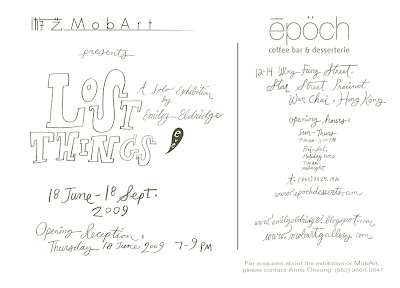 游艺 MobArt
presents
LOST
THINGS
A Solo Exhibition
by
Emily Eldridge
eve
18 June - 18 Sept.
2009
Opening Reception,
Thursday 18 June 2009 7-9 PM
ēpöch
coffee bar & desserterie
12-14 Wing Fung Street.
Star Street Precinct
Wan Chai, Hong Kong
opening hours:
Sun - Thurs
Fri, Sat,
Holiday Eves
midnight
www.epochdesserts.com
www.emilyeldridge.blogspot.com
www.mobartgallery.com
For enquiries about the exhibition or MobArt,
please contact Anne Cheung: